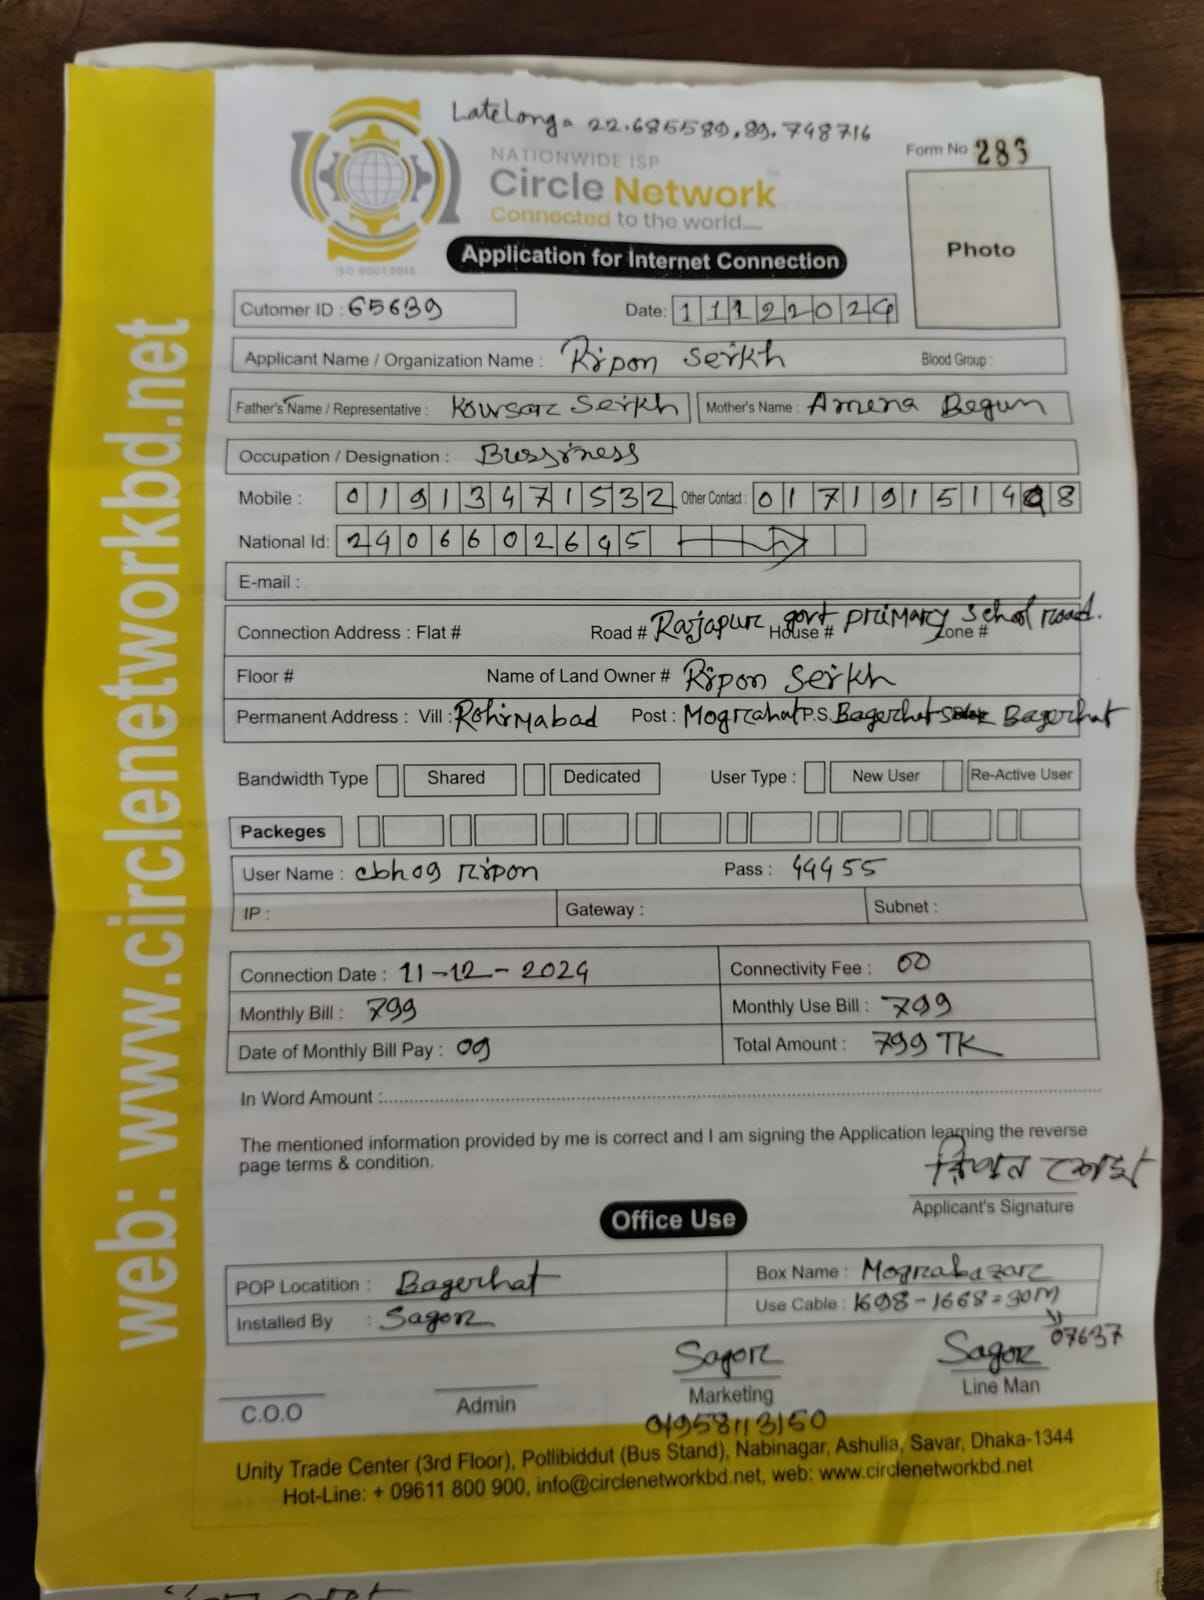 Lat&Long = 22.685589, 89.748716
NATIONWIDE ISP
Form No 283
Circle Network
Connected to the world.....
ISO 9001:2015
Application for Internet Connection
Photo
Cutomer ID : 65639
Date: 11122024
Applicant Name / Organization Name : Ripon Seikh
Blood Group :
Father's Name / Representative : Kowsar Seikh
Mother's Name : Amena Begum
Occupation / Designation : Bussiness
Mobile : 01913471532 Other Contact : 0171915148
National Id: 2406602645
E-mail :
Connection Address : Flat # Road # Rajapur govt primary School road. House # Zone #
Floor # Name of Land Owner # Ripon Seikh
Permanent Address : Vill : Rohimabad Post : Mograhat P.S. Bagerhat Bagerhat
Bandwidth Type Shared Dedicated User Type : New User Re-Active User
Packeges
User Name : cbh09 ripon Pass : 44455
IP : Gateway : Subnet :
Connection Date : 11-12-2024 Connectivity Fee : 00
Monthly Bill : 799 Monthly Use Bill : 799
Date of Monthly Bill Pay : 09 Total Amount : 799 TK
In Word Amount :
The mentioned information provided by me is correct and I am signing the Application learning the reverse
page terms & condition.
রিপন শেখ
Applicant's Signature
Office Use
POP Locatition : Bagerhat Box Name : Mograbazar
Installed By : Sagor Use Cable : 1698-1668=30M
07637
Sagor Sagor
C.O.O Admin Marketing Line Man
01958113150
Unity Trade Center (3rd Floor), Pollibiddut (Bus Stand), Nabinagar, Ashulia, Savar, Dhaka-1344
Hot-Line: + 09611 800 900, info@circlenetworkbd.net, web: www.circlenetworkbd.net
web: www.circlenetworkbd.net